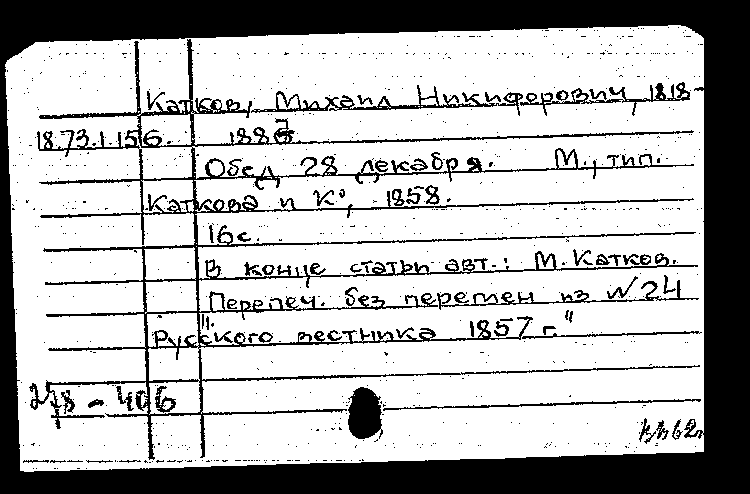 Катков, Михаил Никифорович, 1818-
18.73.1.156. 1887
Обед 28 декабря. М., тип.
Каткова и К°, 1858.
16с.
В конце статьи авт.: М. Катков.
Перепеч. без перемен из № 24
"Русского вестника 1857 г."
278 - 406